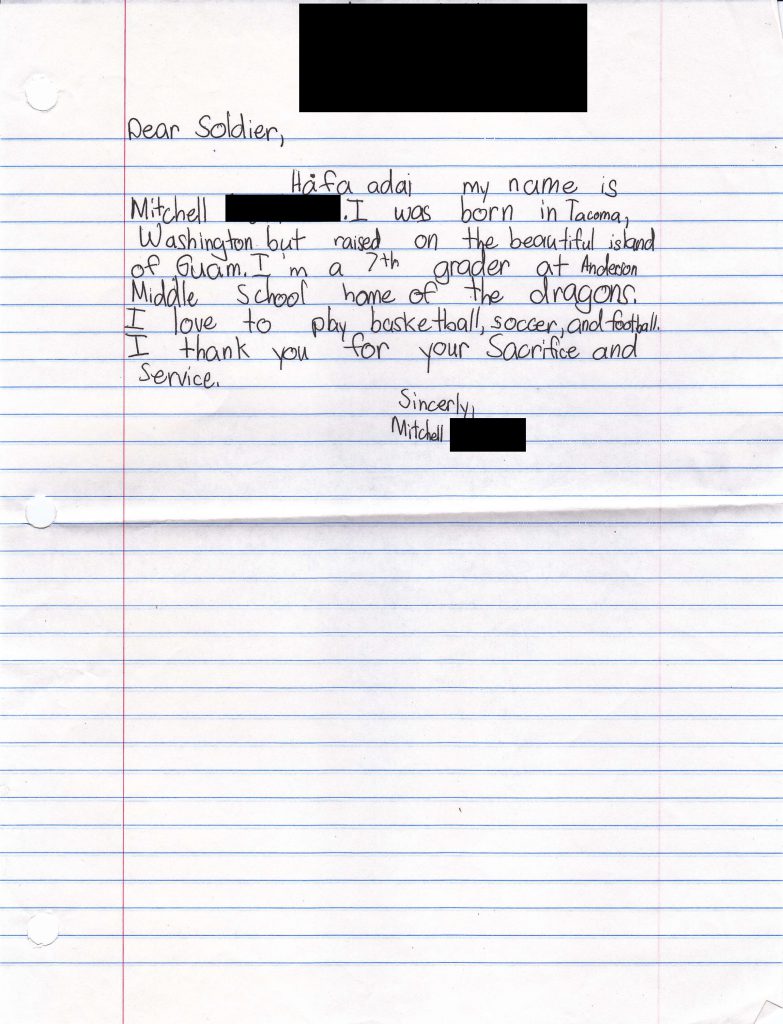 Dear Soldier,
Håfa adai my name is
Mitchell .I was born in Tacoma,
Washington but raised on the beautiful island
of Guam. I'm a 7th grader at Anderson
Middle School home of the dragons.
I love to play basketball, soccer, and football.
I thank you for your Sacrifice and
Service.
Sincerly,
Mitchell